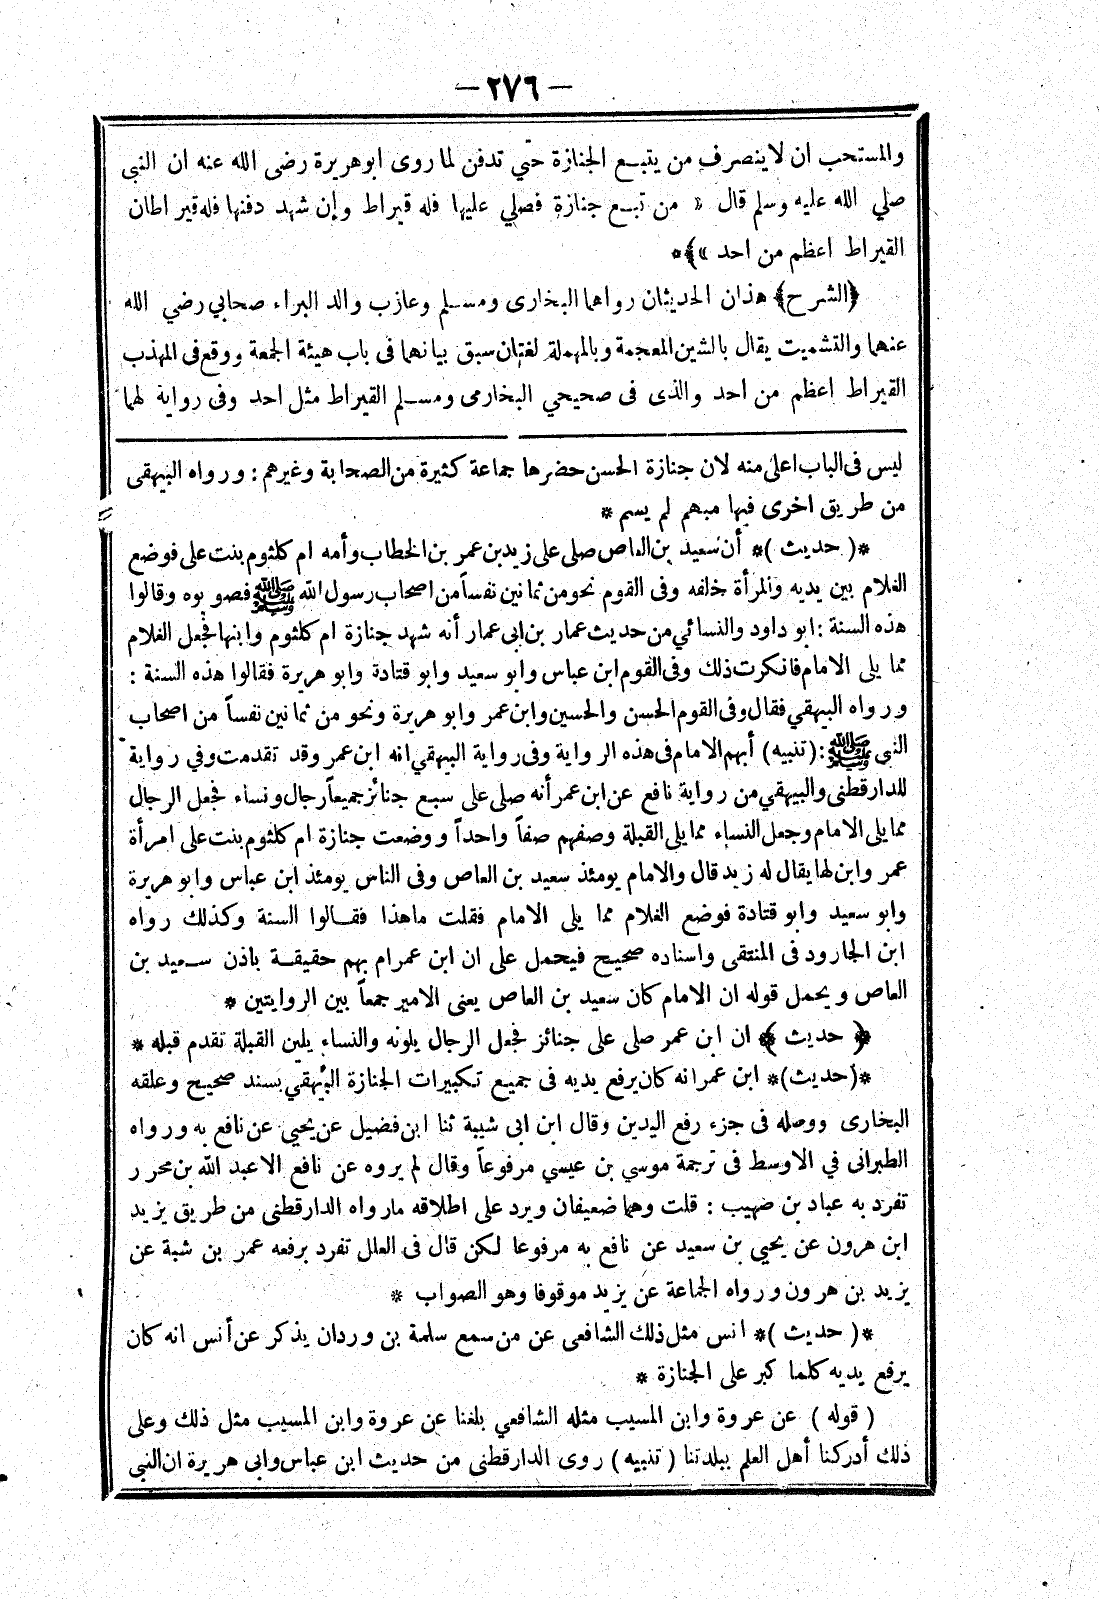 — ٢٧٦ —
والمستحب ان لا ينصرف من يتبع الجنازة حتي تدفن لما روى ابو هريرة رضى الله عنه ان النبي
صلي الله عليه وسلم قال « من تبع جنازة فصلي عليها فله قيراط وإن شهد دفنها فله قيراطان
القيراط اعظم من احد »﴾ *
﴿الشرح﴾ هذان الحديثان رواهما البخارى ومسلم وعازب والد البراء صحابي رضي الله
عنهما والتشميت يقال بالشين المعجمة وبالمهملة لغتان سبق بيانهما فى باب هيئة الجمعة ووقع فى المهذب
القيراط اعظم من احد والذى فى صحيحي البخارى ومسلم القيراط مثل احد وفى رواية لهما
ليس فى الباب اعلى منه لان جنازة الحسن حضرها جماعة كثيرة من الصحابة وغيرهم : ورواه البيهقى
من طريق اخرى فيها مبهم لم يسم *
*( حديث )* أن سعيد بن العاص صلى على زيد بن عمر بن الخطاب وأمه ام كلثوم بنت على فوضع
الغلام بين يديه والمرأة خلفه وفى القوم نحو من ثمانين نفساً من اصحاب رسول الله ﷺ فصوبوه وقالوا
هذه السنة : ابو داود والنسائي من حديث عمار بن ابى عمار أنه شهد جنازة ام كلثوم وابنها فجعل الغلام
مما يلى الامام فانكرت ذلك وفى القوم ابن عباس وابو سعيد وابو قتادة وابو هريرة فقالوا هذه السنة :
ورواه البيهقي فقال وفى القوم الحسن والحسين وابن عمر وابو هريرة ونحو من ثمانين نفساً من اصحاب
النبى ﷺ : (تنبيه) أبهم الامام فى هذه الرواية وفى رواية البيهقي انه ابن عمر وقد تقدمت وفي رواية
للدارقطنى والبيهقي من رواية نافع عن ابن عمر أنه صلى على سبع جنائز جميعاً رجال ونساء فجعل الرجال
مما يلى الامام وجعل النساء مما يلى القبلة وصفهم صفاً واحداً ووضعت جنازة ام كلثوم بنت على امرأة
عمر وابن لها يقال له زيد قال والامام يومئذ سعيد بن العاص وفى الناس يومئذ ابن عباس وابو هريرة
وابو سعيد وابو قتادة فوضع الغلام مما يلى الامام فقلت ماهذا فقالوا السنة وكذلك رواه
ابن الجارود فى المنتقى واسناده صحيح فيحمل على ان ابن عمر ام بهم حقيقة باذن سعيد بن
العاص ويحمل قوله ان الامام كان سعيد بن العاص يعنى الامير جمعاً بين الروايتين *
﴿ حديث ﴾ ان ابن عمر صلى على جنائز فجعل الرجال يلونه والنساء يلين القبلة تقدم قبله *
*(حديث)* ابن عمر انه كان يرفع يديه فى جميع تكبيرات الجنازة البيهقي بسند صحيح وعلقه
البخارى ووصله فى جزء رفع اليدين وقال ابن ابى شيبة ثنا ابن فضيل عن يحيى عن نافع به ورواه
الطبرانى في الاوسط فى ترجمة موسي بن عيسي مرفوعاً وقال لم يروه عن نافع الا عبد الله بن محرر
تفرد به عباد بن صهيب : قلت وهما ضعيفان ويرد على اطلاقه مارواه الدارقطنى من طريق يزيد
ابن هرون عن يحيي بن سعيد عن نافع به مرفوعا لكن قال فى العلل تفرد برفعه عمر بن شبة عن
يزيد بن هرون ورواه الجماعة عن يزيد موقوفا وهو الصواب *
*( حديث )* انس مثل ذلك الشافعى عن من سمع سلمة بن وردان يذكر عن أنس انه كان
يرفع يديه كلما كبر على الجنازة *
( قوله ) عن عروة وابن المسيب مثله الشافعي بلغنا عن عروة وابن المسيب مثل ذلك وعلى
ذلك أدركنا أهل العلم ببلدتنا ( تنبيه ) روى الدارقطنى من حديث ابن عباس وابى هريرة ان النبى